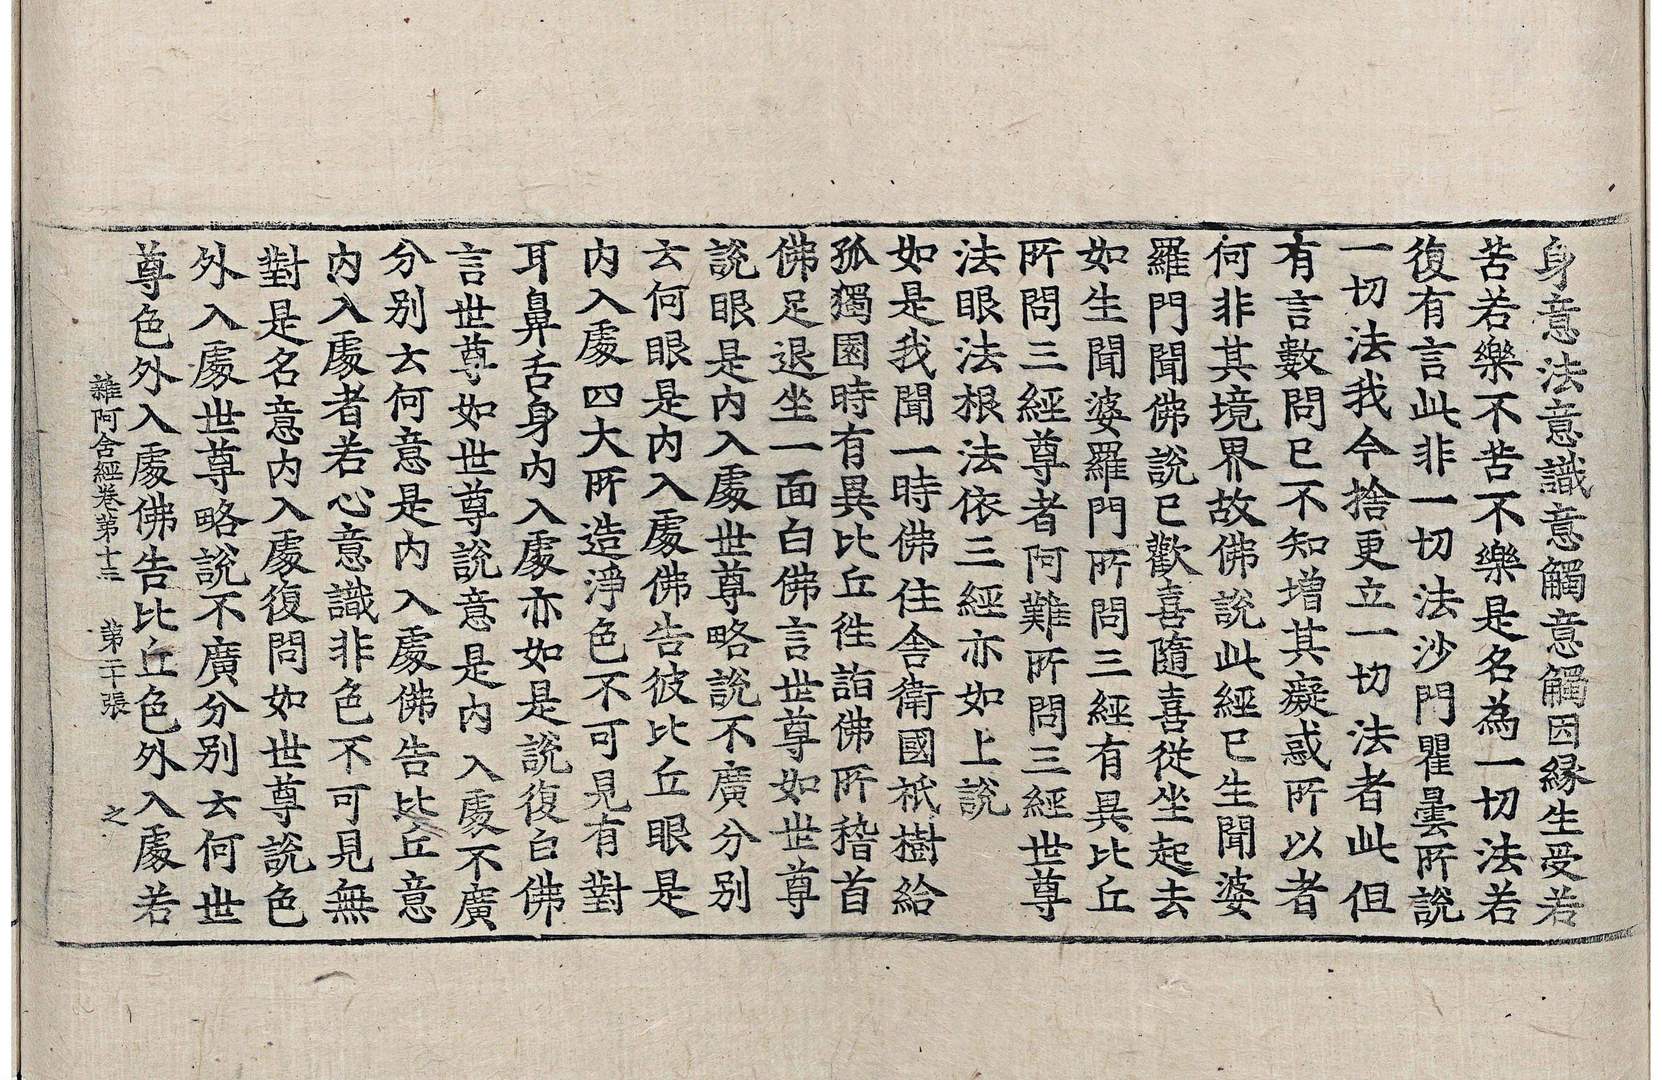 身意法意識意觸意觸因緣生受若
苦若樂不苦不樂是名為一切法若
復有言此非一切法沙門瞿曇所說
一切法我今捨更立一切法者此但
有言數問已不知增其癡惑所以者
何非其境界故佛說此經已生聞婆
羅門聞佛說已歡喜隨喜從坐起去
如生聞婆羅門所問三經有異比丘
所問三經尊者阿難所問三經世尊
法眼法根法依三經亦如上說
如是我聞一時佛住舍衛國祇樹給
孤獨園時有異比丘往詣佛所稽首
佛足退坐一面白佛言世尊如世尊
說眼是內入處世尊略說不廣分別
云何眼是內入處佛告彼比丘眼是
內入處四大所造淨色不可見有對
耳鼻舌身內入處亦如是說復白佛
言世尊如世尊說意是內入處不廣
分別云何意是內入處佛告比丘意
內入處者若心意識非色不可見無
對是名意內入處復問如世尊說色
外入處世尊略說不廣分別云何世
尊色外入處佛告比丘色外入處若
雜阿含經卷第十三 第二十張 之